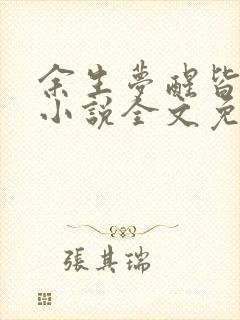 余生夢醒皆
小說全文免
張其瑞